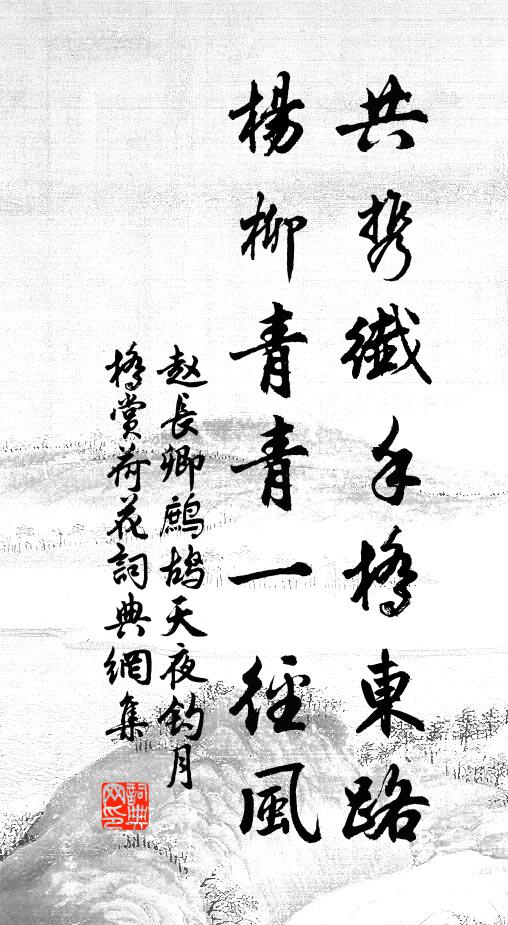 共携纖手橋東路
楊柳青青一徑風
赵長卿鷓鴣天夜钓月
橋賞荷花詞典網集
詞典网印